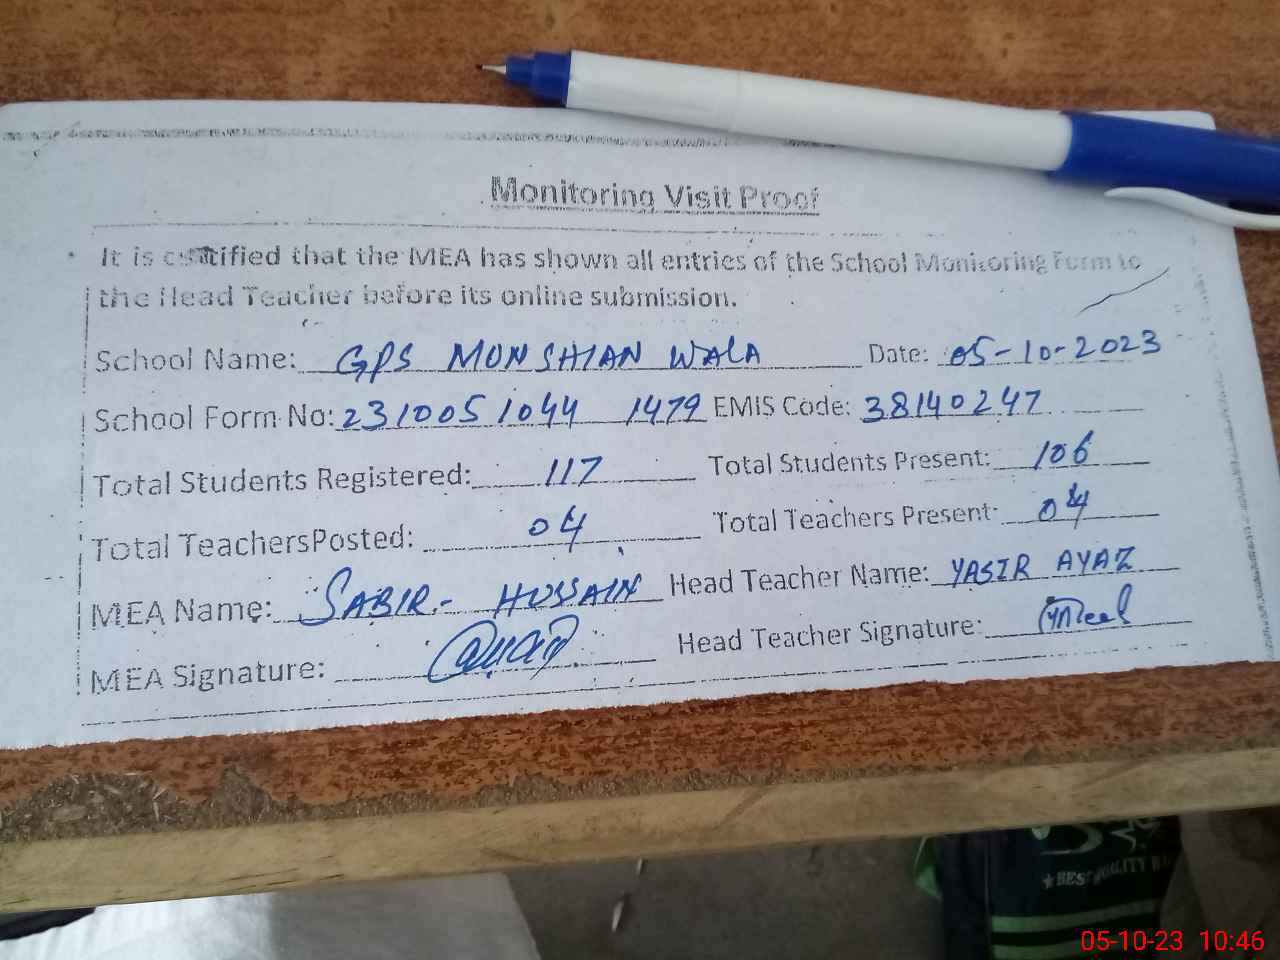 Monitoring Visit Proof
It is certified that the MEA has shown all entries of the School Monitoring Form to
the Head Teacher before its online submission.
School Name: GPS MUNSHIAN WALA Date: 05-10-2023
School Form No: 2310051044 1479 EMIS Code: 38140247
Total Students Registered: 117 Total Students Present: 106
Total Teachers Posted: 04 Total Teachers Present: 04
MEA Name: SABIR.- HUSSAIN Head Teacher Name: YASIR AYAZ
MEA Signature: Head Teacher Signature:
★BEST QUALITY
05-10-23 10:46